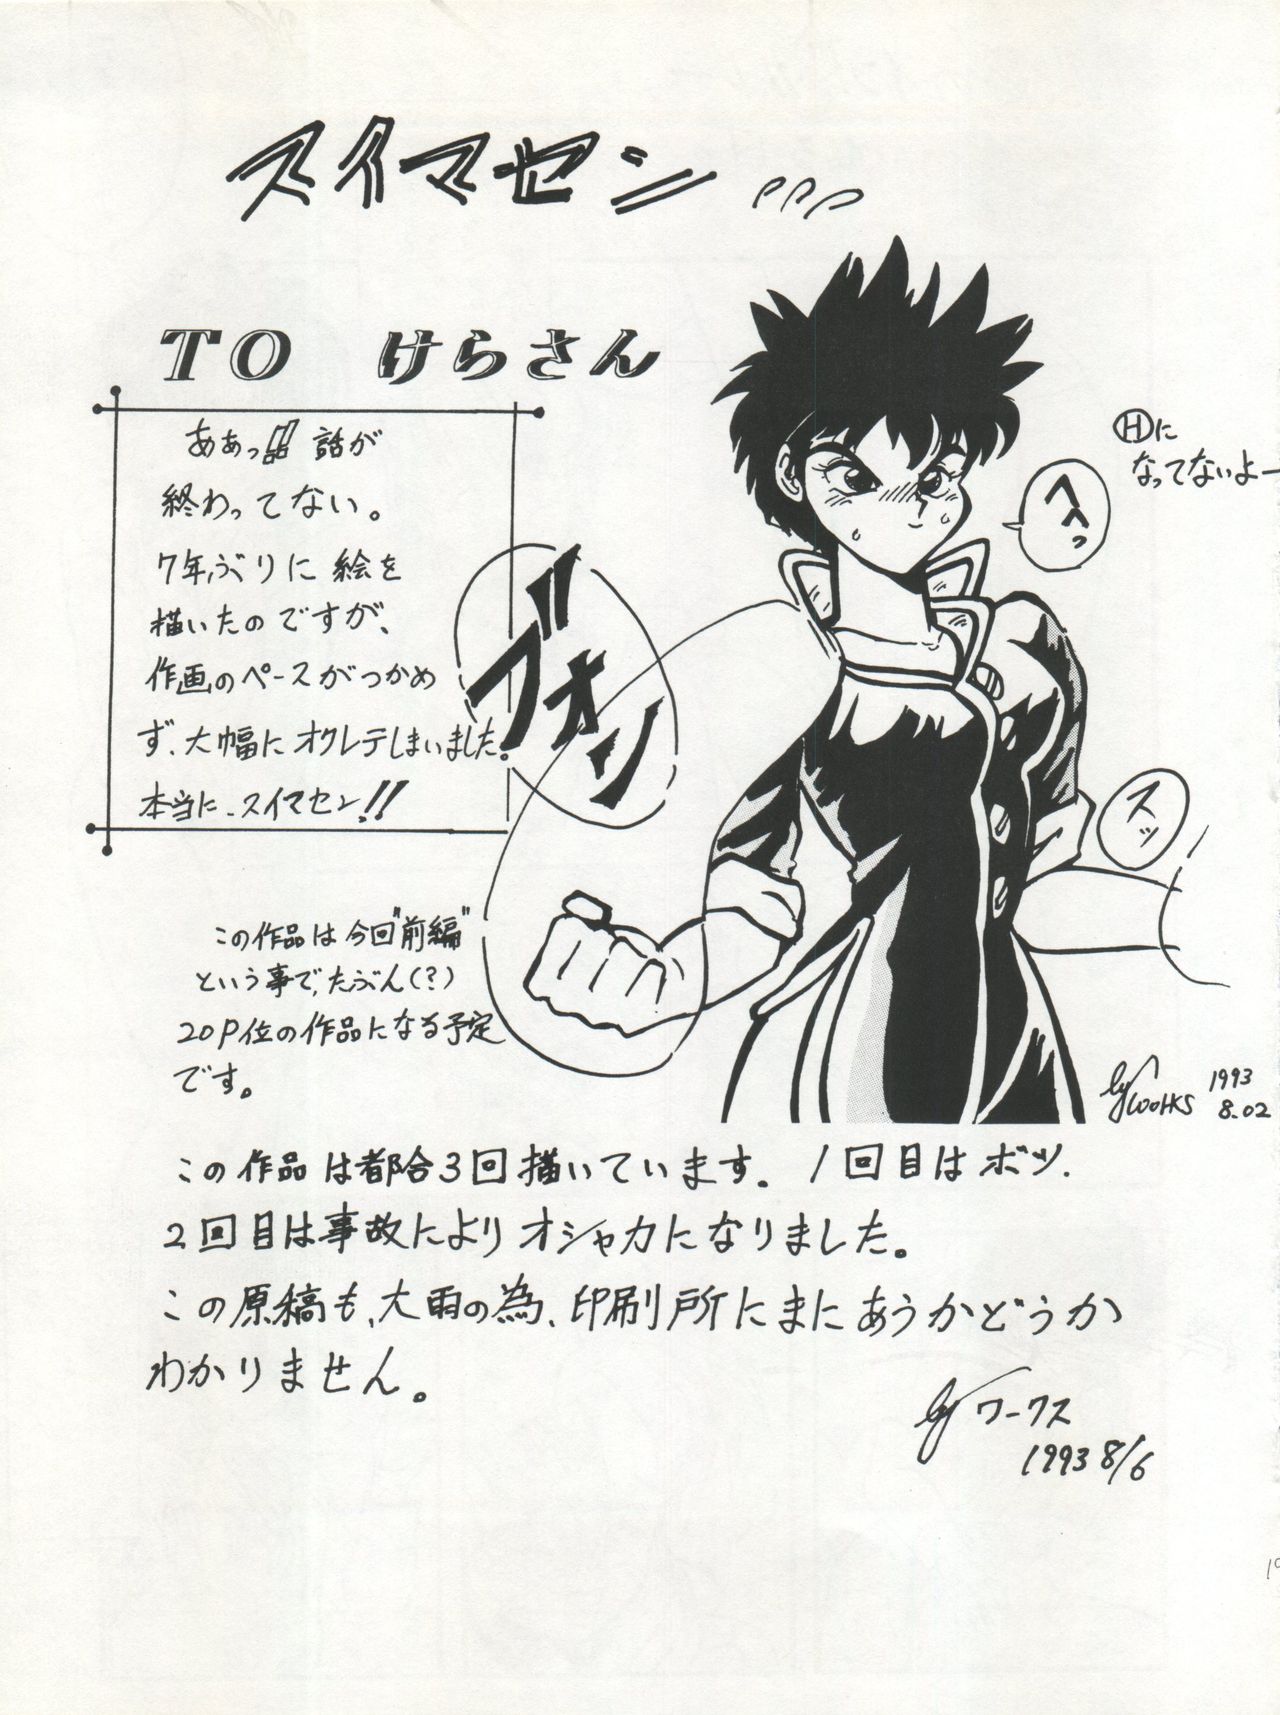 スイマセン
TO けらさん
ああっ!! 話が
終わってない。
7年ぶりに絵を
描いたのですが、
作画のペースがつかめ
ず、大幅にオクレテしまいました。
本当に、スイマセン!!
Ⓗに
なってないよー
へへっ
ブオン
スッ
この作品は今回"前編"
という事で、たぶん(?)
20P位の作品になる予定
です。
by WORKS 1993
8.02
この作品は都合3回描いています。1回目はボツ、
2回目は事故によりオシャカになりました。
この原稿も、大雨の為、印刷所にまにあうかどうか
わかりません。
by ワークス
1993 8/6